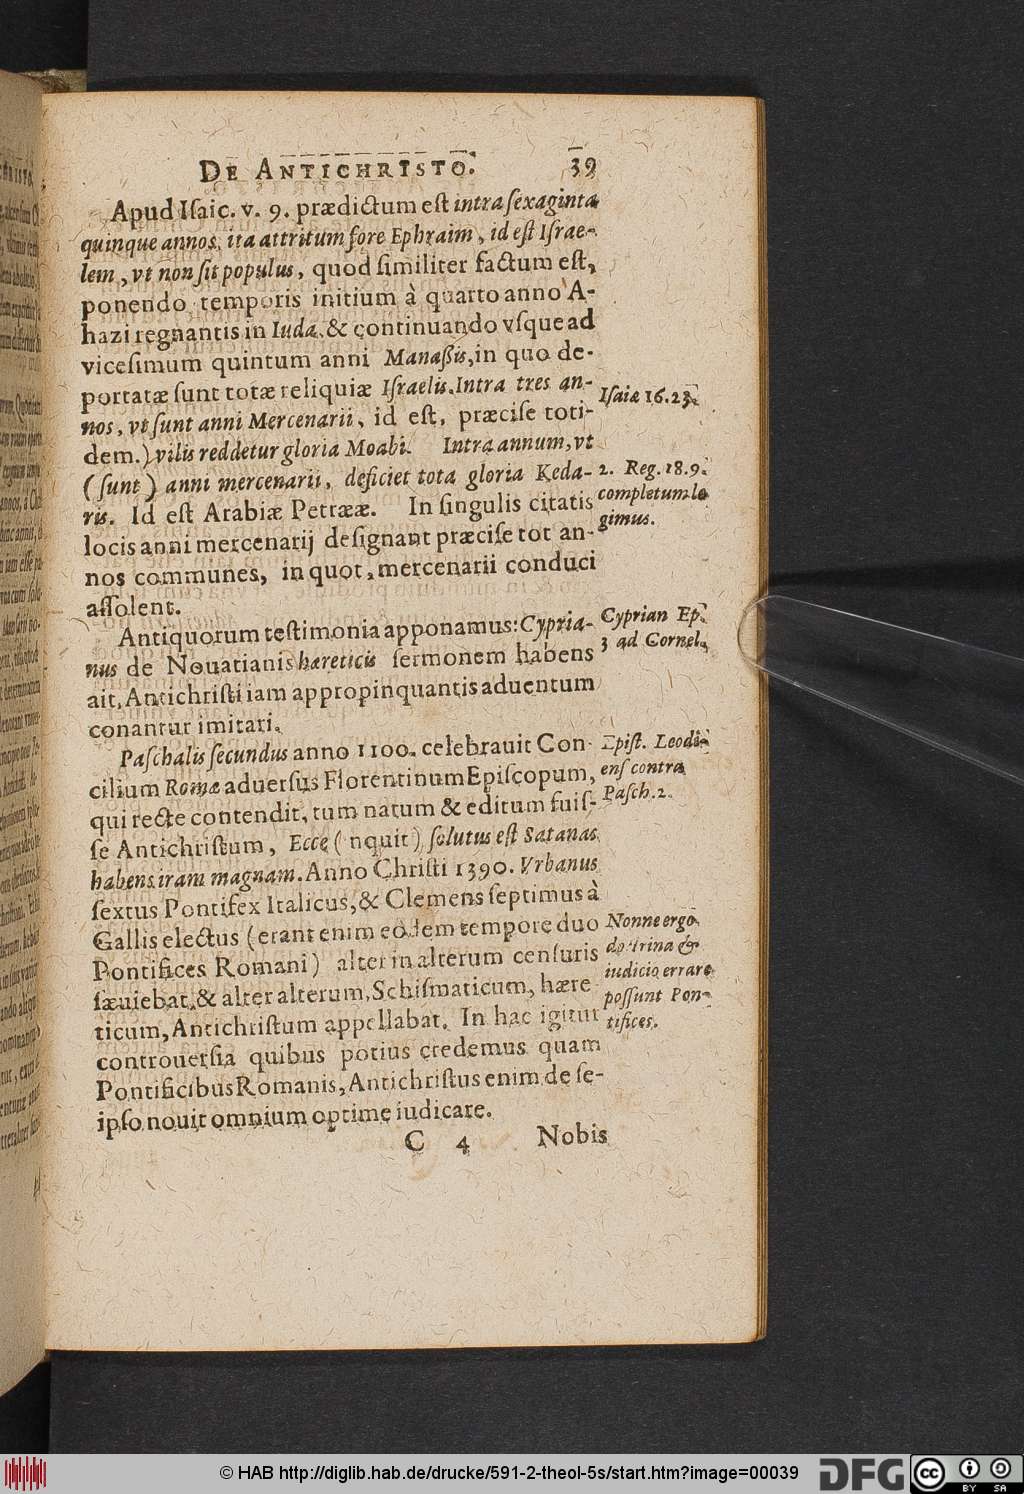 DE ANTICHRISTO. 39
Apud Iſaic. v. 9. prædictum eſt intra ſexaginta
quinque annos, ita attritum fore Ephraim, id eſt Iſrae-
lem, vt non ſit populus, quod ſimiliter factum eſt,
ponendo temporis initium à quarto anno A-
hazi regnantis in Iuda, & continuando vſque ad
viceſimum quintum anni Manaßis, in quo de-
portatæ ſunt totæ reliquiæ Iſraelis. Intra tres an-
nos, vt ſunt anni Mercenarii, id eſt, præciſe toti-
dem.) vilis reddetur gloria Moabi. Intra annum, vt
(ſunt) anni mercenarii, deficiet tota gloria Keda-
ris. Id eſt Arabiæ Petrææ. In ſingulis citatis
locis anni mercenarij deſignant præciſe tot an-
nos communes, in quot, mercenarii conduci
aſſolent.
Iſaiæ 16.23.
2. Reg. 18.9.
completum le
gimus.
Antiquorum teſtimonia apponamus: Cypria-
nus de Nouatianis hæreticis ſermonem habens
ait, Antichriſti iam appropinquantis aduentum
conantur imitari.
Cyprian Ep.
3 ad Cornel.
Paſchalis ſecundus anno 1100. celebrauit Con-
cilium Romæ aduerſus Florentinum Epiſcopum,
qui recte contendit, tum natum & editum fuiſ-
ſe Antichriſtum, Ecce (nquit) ſolutus eſt Satanas
habens iram magnam. Anno Chriſti 1390. Vrbanus
ſextus Pontifex Italicus, & Clemens ſeptimus à
Gallis electus (erant enim eodem tempore duo
Pontifices Romani) alter in alterum cenſuris
ſæuiebat, & alter alterum, Schiſmaticum, hære
ticum, Antichriſtum appellabat. In hac igitur
controuerſia quibus potius credemus quam
Pontificibus Romanis, Antichriſtus enim de ſe-
ipſo nouit omnium optime iudicare.
Epiſt. Leodi-
enſ contra
Paſch. 2.
Nonne ergo
doctrina &
iudicio errare
poſſunt Pon-
tifices.
C 4 Nobis
© HAB http://diglib.hab.de/drucke/591-2-theol-5s/start.htm?image=00039
DFG
cc BY SA